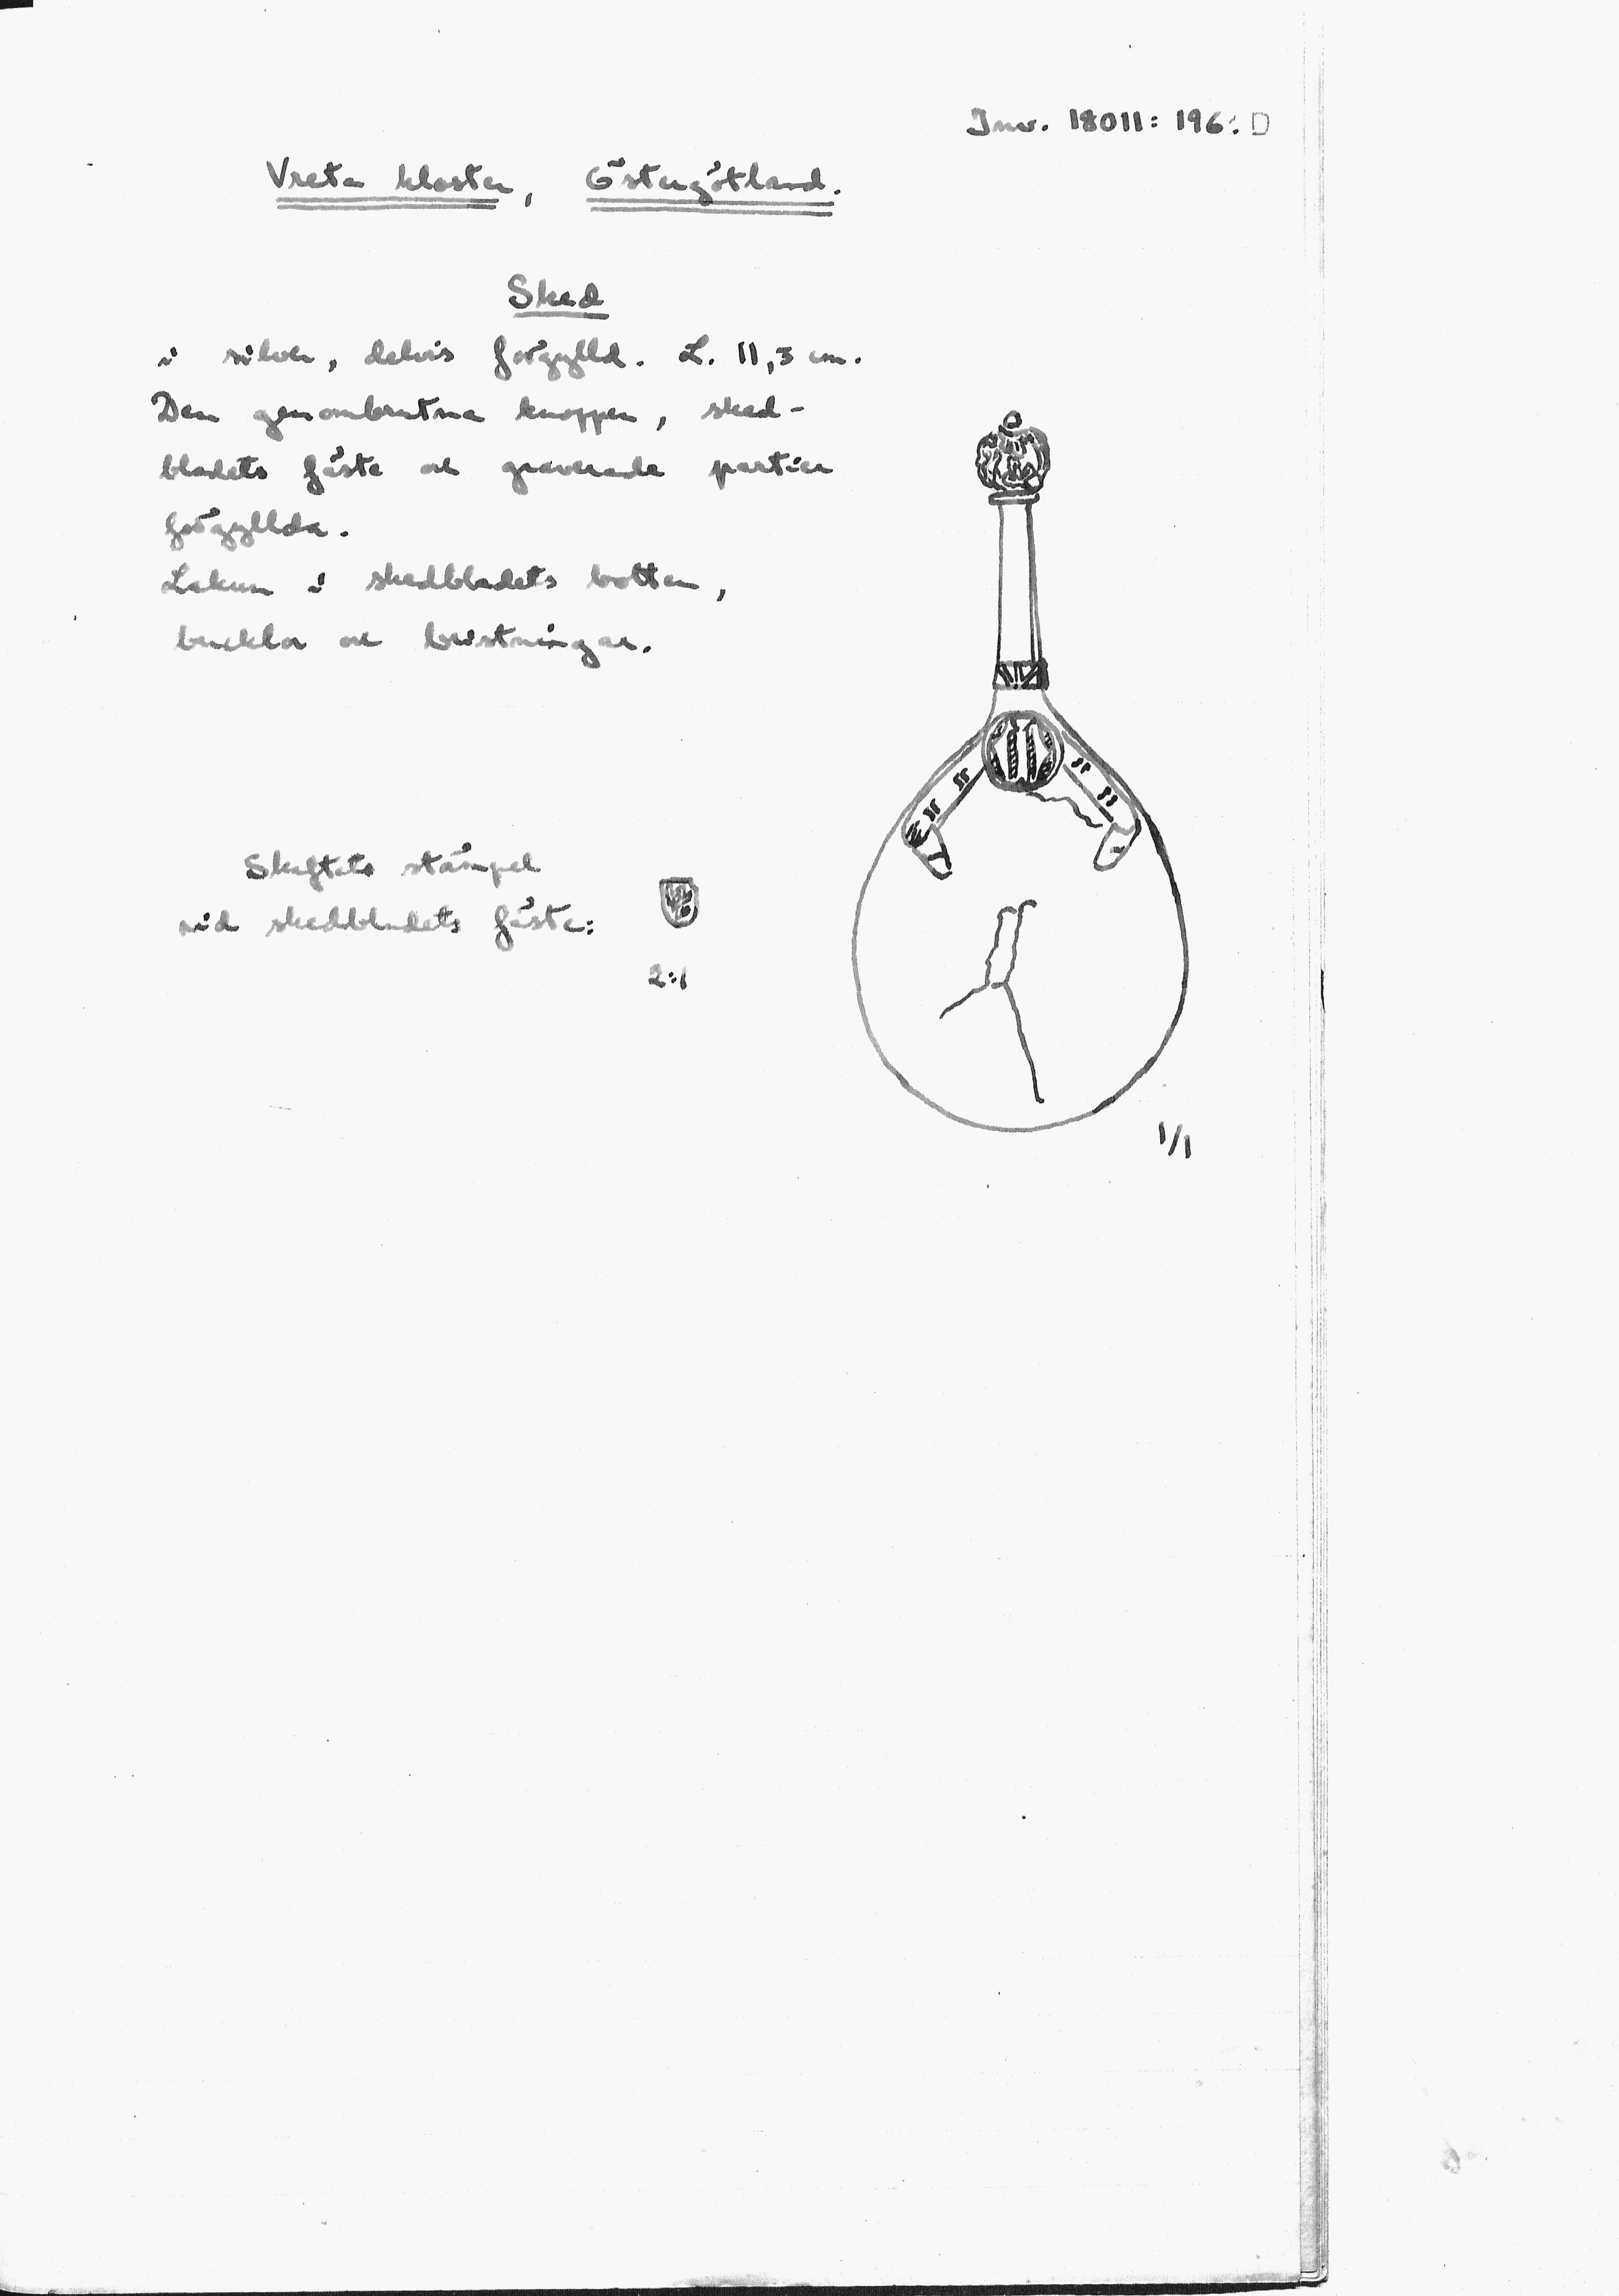 Inv. 18011:196:D
Vreta kloster, Östergötland.
Sked
i silver, delvis förgylld. L. 11,3 cm.
Den genombrutna knoppen, sked-
bladets fäste och graverade partier
förgyllda.
Lakun i skedbladets botten,
bucklor och bristningar.
Skaftets stämpel
vid skedbladets fäste:
2:1
1/1